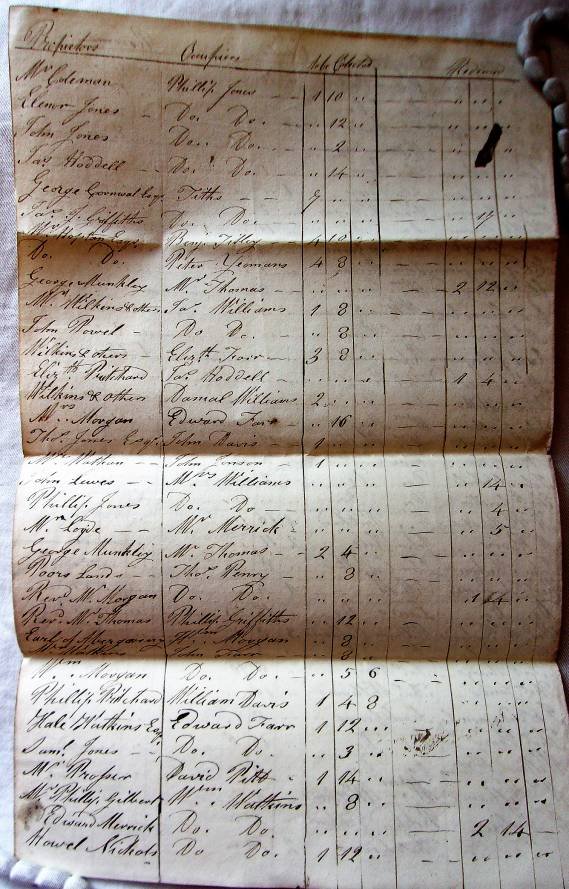 Proprietors Occupiers to be Collected Redeemed
Mr Coleman Phillip Jones - - 1 10 .. .. .. ..
Elenor Jones - Do. Do. - - .. 12 .. .. .. ..
John Jones Do. Do. - - .. 2 .. .. ..
Jas Hoddell - Do. Do. - - .. 14 .. .. .. ..
George Cornwal Esq. Tiths - - 7 .. .. .. .. ..
Jas Griffiths Do. Do. .. .. .. .. 17 ..
Esqr. Benj. Tilley - 4 10 .. .. .. ..
Do. Do. Peter Yeomans 4 8 .. .. .. ..
George Munkley Mr Thomas - - .. .. .. 2 12 ..
Mr Wilkins & others Jas Williams 1 8 .. .. .. ..
John Powel - Do Do. - .. 8 .. .. .. ..
Wilkins & others - Elizth Farr - 3 8 .. .. .. ..
Elizth Pritchard Jas Hoddell - .. .. .. 1 4 ..
Wilkins & others Damal Williams 2 .. .. .. .. ..
Mrs Morgan Edward Farr .. 16 .. .. .. ..
Thos. Jones Esqr. John Davis - 1 .. .. .. .. ..
Mr Wathan - - John Jonson - 1 .. .. .. .. ..
John Lewes - Mrs Williams .. .. .. .. 14 ..
Phillip Jones Do. Do - .. .. .. .. 4 ..
Mr Loyde - - Mr Merrick .. .. .. .. 5 ..
George Munkley Mr Thomas - - 2 4 .. .. .. ..
Poors Lands - Thos. Penry - .. 8 .. .. .. ..
Revd. Mr Morgan Do. Do. .. .. .. 1 14 ..
Revd. Mr Thomas Phillip Griffiths .. 12 .. .. .. ..
Earl of Wm Morgan .. 8 .. .. .. ..
Watkins John Farr - .. 8 .. .. .. ..
Wm Morgan Do. Do. - .. 5 6 .. .. ..
Phillip Pritchard William Davis 1 4 8 .. .. ..
Hale Watkins Esq. Edward Farr 1 12 .. .. .. ..
Saml. Jones - Do. Do. .. 3 .. .. .. ..
Mr Prosser David Pitt - 1 14 .. .. .. ..
Mr Phillip Gilbert Wm Watkins .. 8 .. .. .. ..
Edward Merrick Do. Do. .. .. .. 2 14 -
Howel Nickols Do Do. 1 12 .. .. .. ..